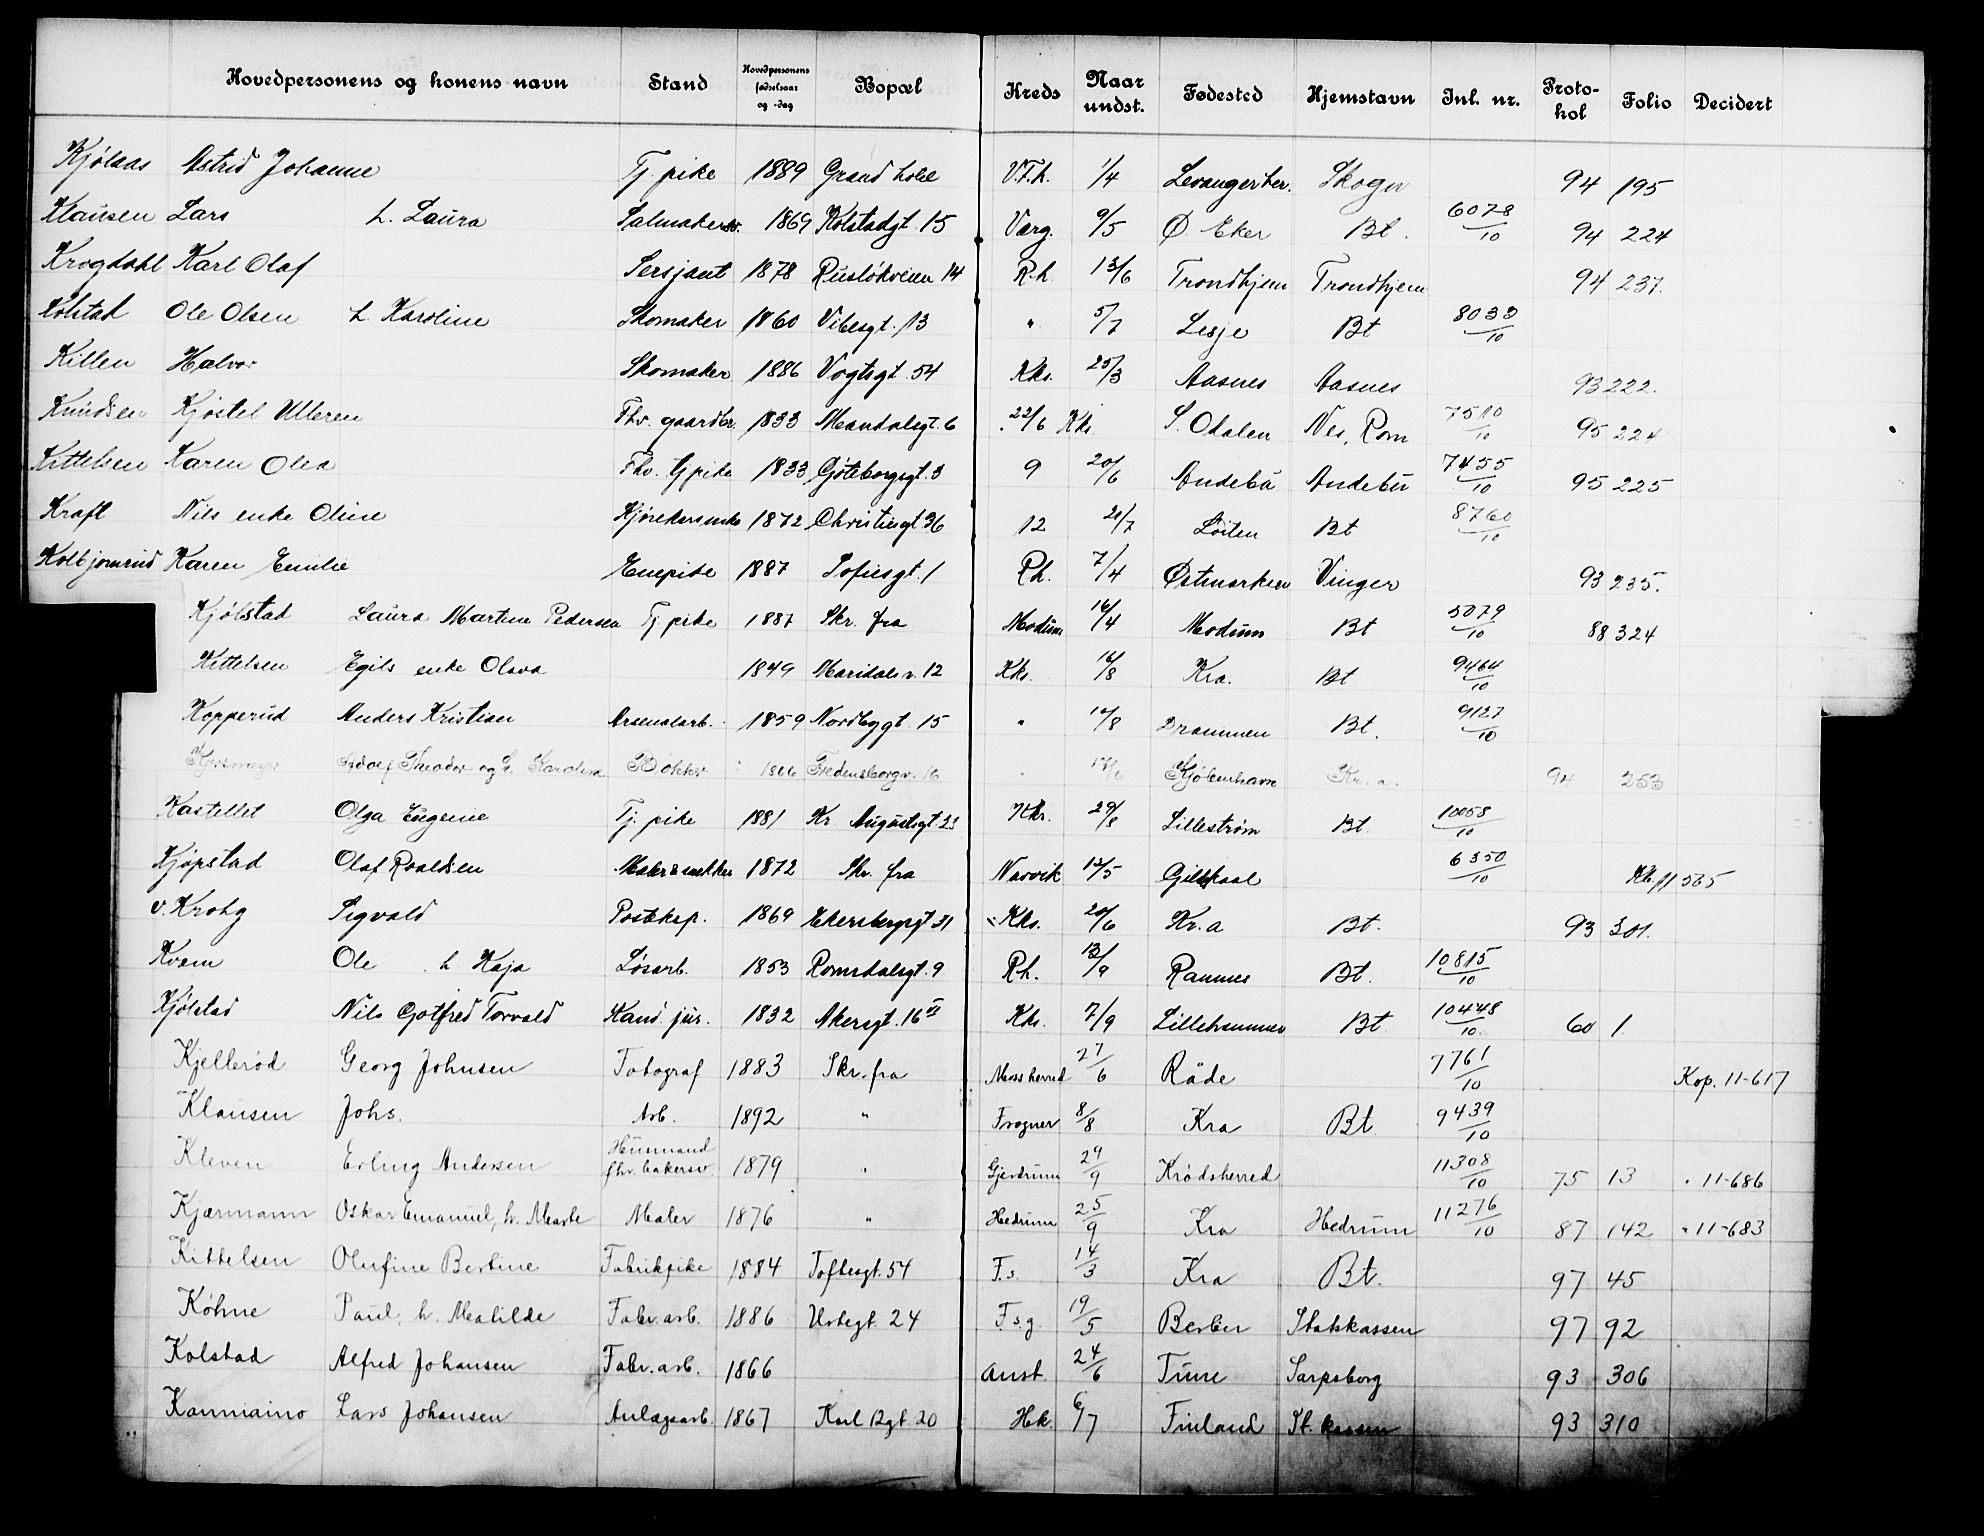 Hovedpersonens og konens navn Stand Hovedpersonens fødselsaar og -dag Bopæl Kreds Naar undst. Fødested Hjemstavn Inl. nr. Proto-kol Folio Decidert
Kjølaas Astrid Johanne Tj. pike 1889 Grand hotel V.F.h. 1/4 Levanger Skogn 94 195
Klausen Lars h. Laura Salmakersv. 1869 Kolstadgt. 15 Værg. 9/5 Ø. Eker Bt. 6078/10 94 224
Krogdahl Karl Olaf Sersjant 1878 Ruseløkveien 14 R.h. 13/6 Trondhjem Trondhjem 94 237.
Kolstad Ole Olsen h. Karoline Skomaker 1860 Vibesgt. 13 " 5/7 Lesje Bt 8033/10
Killen Halvor Skomaker 1886 Vogtsgt. 54 Kks. 25/3 Aasnes Aasnes 93 222.
Knudsen Kjøstel Ulleren Fhv. gaardbr. 1833 Mandalsgt. 6 22/6 Kks. S. Odalen Nes, Rom 7510/10 95 224
Kittelsen Karen Olea Fhv. tjpike 1833 Gøteborggt. 3 9 20/6 Andebu Andebu 7455/10 95 225
Kraft Nils enke Oline Kjørekarsenke 1872 Christiesgt. 36 12 21/7 Løiten Bt 8760/10
Kolbjørnrud Karen Emilie Enepike 1887 Sofiesgt. 1 R.h. 7/4 Østmarken Vinger 93 235.
Kjølstad Laura Martine Pedersen Tj. pike 1887 Skr. fra Modum 16/4 Modum Bt 5079/10 88 324
Kittelsen Egils enke Olava 1849 Maridalsv. 12 Kks. 16/8 Kra. Bt 9464/10
Kopperud Anders Kristian Arsenalarb. 1859 Nordbygt 15 " 10/8 Drammen Bt. 9127/10
Adolf Theodor og h. Karoline Bøkker 1866 Fredensborgv. 16 " 17/6 Kjøbenhavn Kr.a. 94 253
Kastellet Olga Eugenie Tj. pike 1881 Kr. Augustsgt. 23 Kks. 29/8 Lillestrøm Bt. 10058/10
Kjøpstad Olaf Roaldsen Maler & snekker 1872 Skr. fra Narvik 12/5 Gildeskaal 6350/10 Kb. 11 565
v. Krohg Sigvald Posteksp. 1869 Ekersbergsgt 31 Kks. 20/6 Kr.a Bt. 93 301.
Kvam Ole h Kaja Løsarb. 1853 Romsdalsgt. 9 R.h. 13/9 Ramnes Bt. 10815/10
Kjølstad Nils Gotfred Torvald Kand. jur. 1832 Akersgt. 16 II Kks. 7/9 Lillehammer Bt. 10448/10 60 1.
Kjellerød Georg Johnsen Fotograf 1883 Skr. fra Moss herred 27/6 Råde 7761/10 Kop. 11-617
Klausen Johs. Arb. 1892 " Frogner 8/8 Kra Bt. 9439/10
Kleven Erling Andersen Husmand fhv. bakersv. 1879 " Gjerdrum 29/9 Krødsherred 11308/10 75 13 " 11-686
Kjærmann Oskar Emanuel, h. Marte Maler 1876 " Hedrum 25/9 Kra Hedrum 11276/10 87 142 " 11-683
Kittelsen Olufine Bertine Fabrikpike 1884 Toftesgt. 54 F.s. 14/3 Kra Bt. 97 45
Köhne Paul, h. Matilde Fabr. arb. 1886 Urtegt. 24 F.s.g. 19/5 Berlin Statskassen 97 92
Kolstad Alfred Johansen Fabr. arb. 1866 Anst. 24/6 Tune Sarpsborg 93 306
Kanniaino Lars Johansen Anlægsarb. 1867 Karl 12gt. 20 Hk. 6/7 Finland St. kassen 93 310